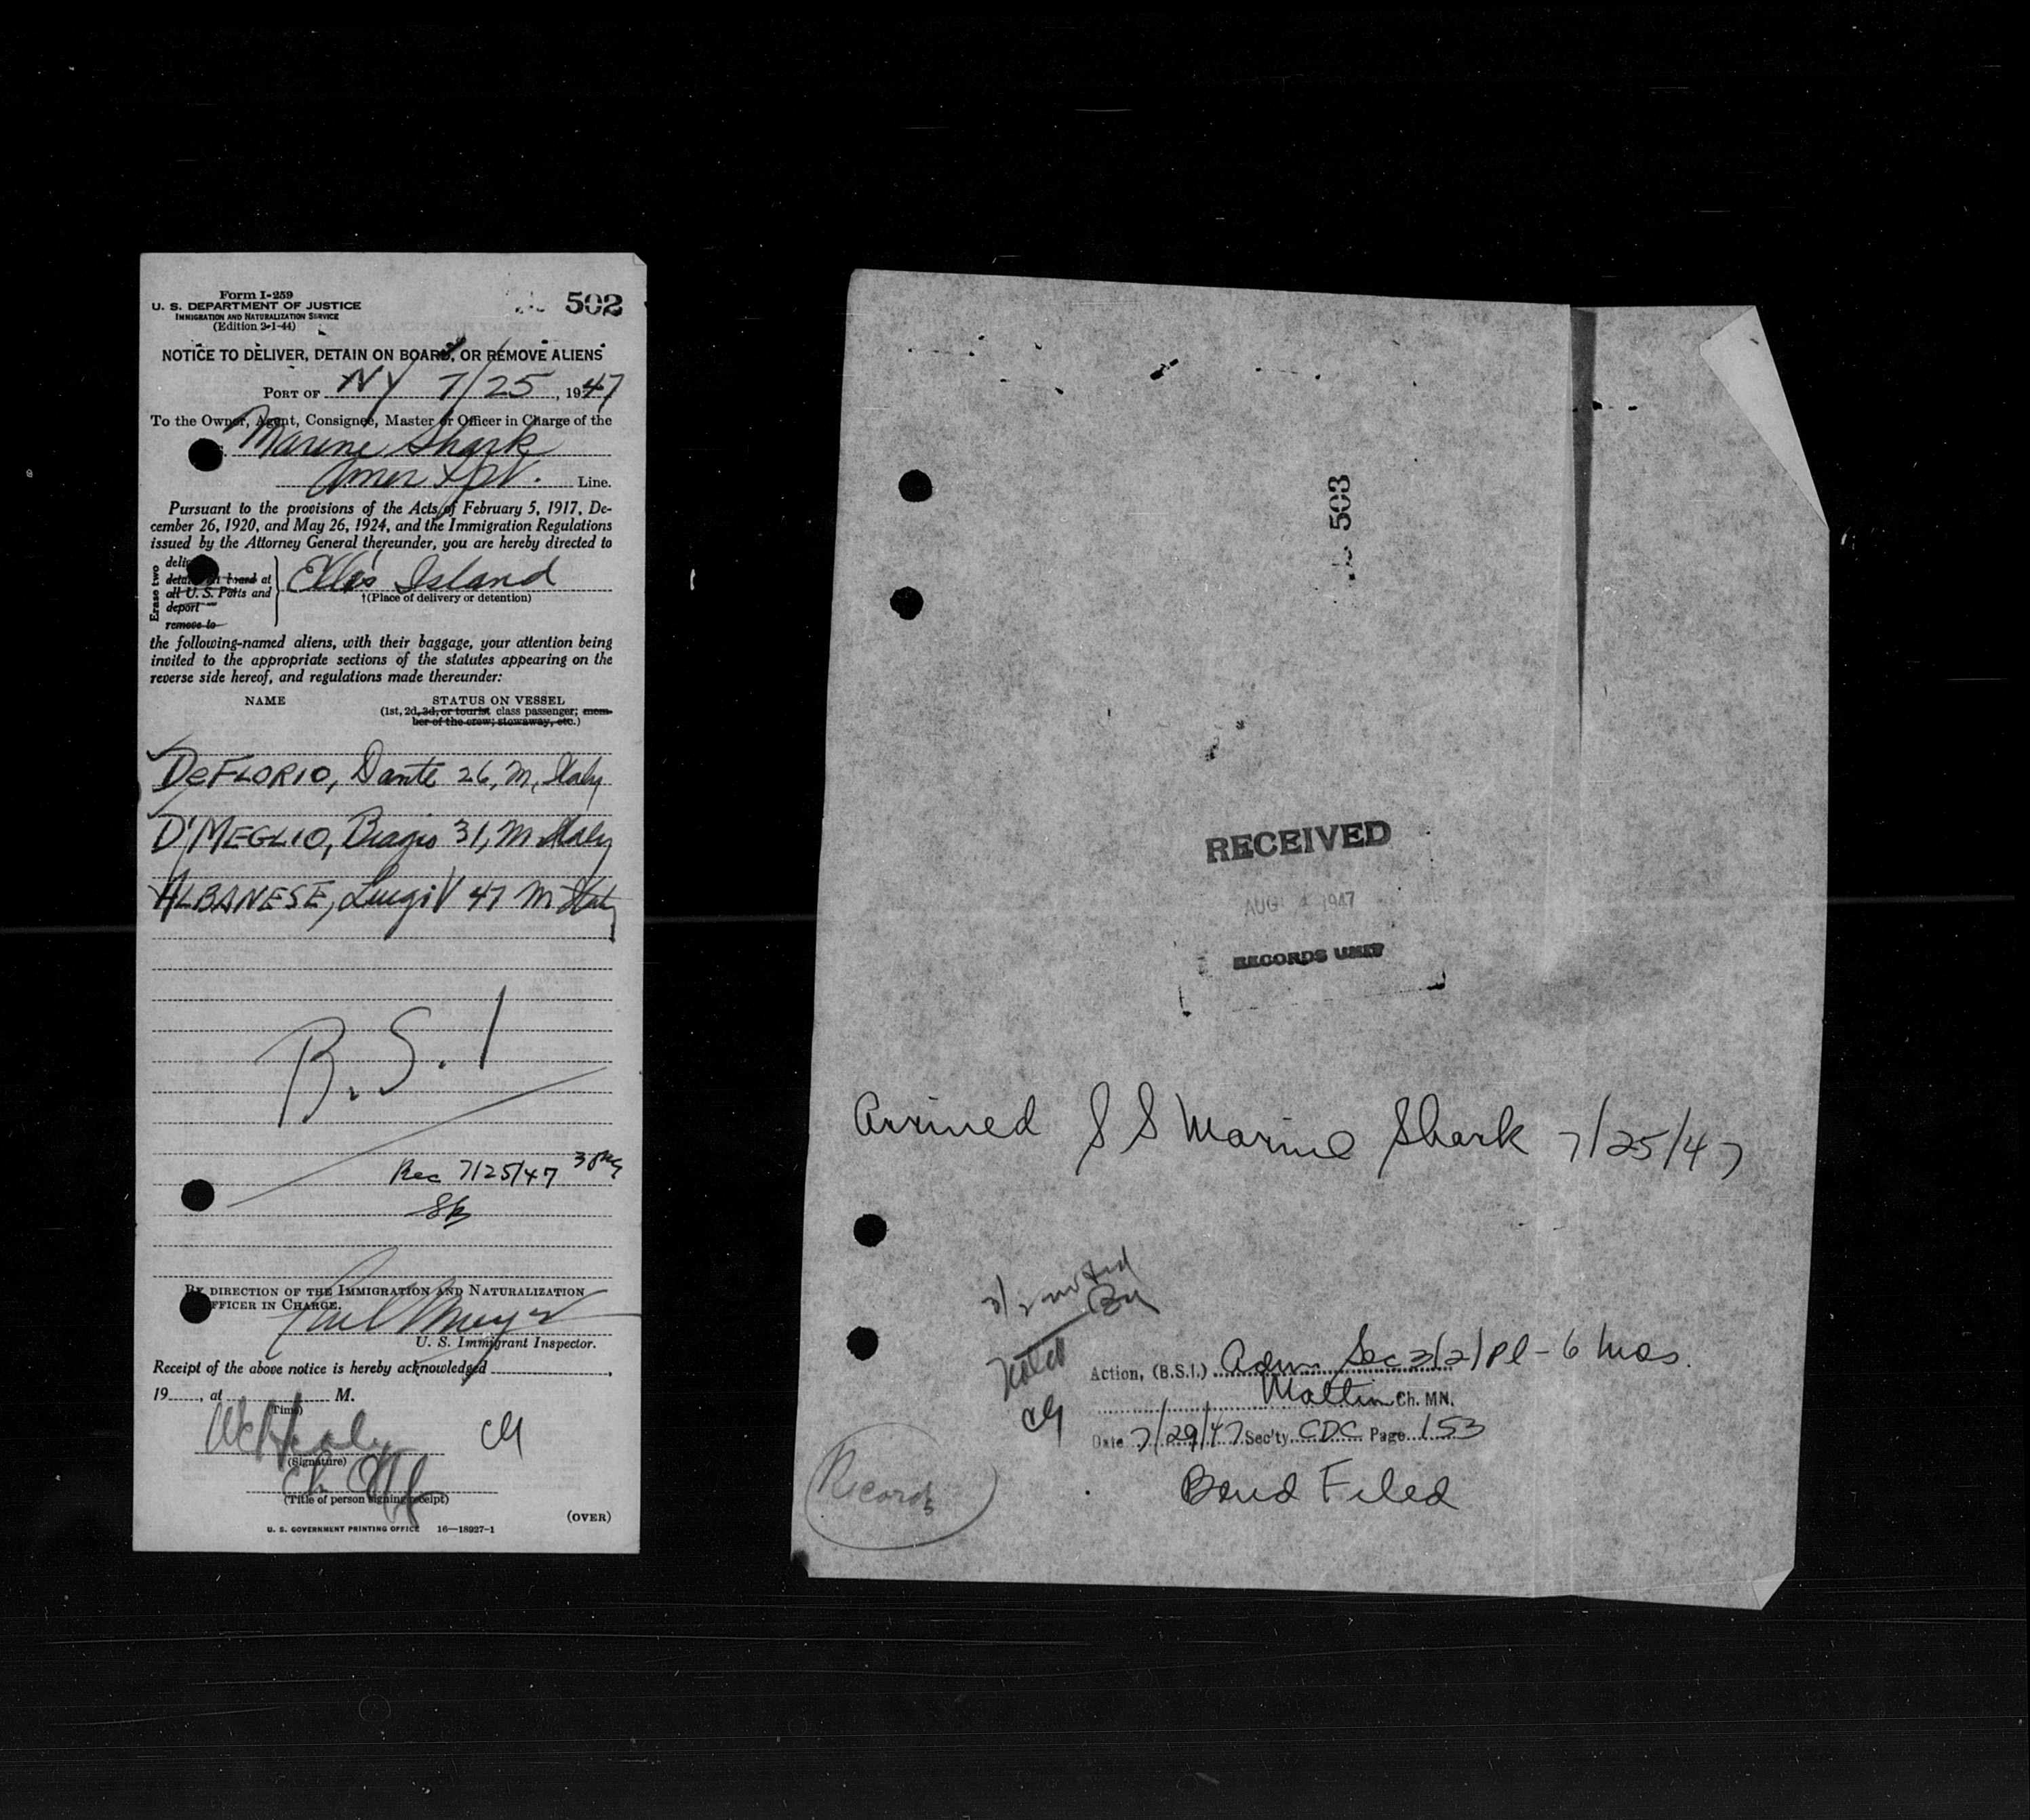 Form I-259
U. S. DEPARTMENT OF JUSTICE
IMMIGRATION AND NATURALIZATION SERVICE
(Edition 2-1-44)
502
NOTICE TO DELIVER, DETAIN ON BOARD, OR REMOVE ALIENS
PORT OF NY 7/25, 1947
To the Owner, Agent, Consignee, Master or Officer in Charge of the
Marine Shark
Amer Line.
Pursuant to the provisions of the Acts of February 5, 1917, De-
cember 26, 1920, and May 26, 1924, and the Immigration Regulations
issued by the Attorney General thereunder, you are hereby directed to
Erase two
board at
all U. S. Ports and
deport
remove to
Ellis Island
†(Place of delivery or detention)
the following-named aliens, with their baggage, your attention being
invited to the appropriate sections of the statutes appearing on the
reverse side hereof, and regulations made thereunder:
NAME STATUS ON VESSEL
(1st, 2d, 3d, or tourist class passenger; mem-
ber of the crew; stowaway, etc.)
DeFLORIO, Dante 26, M, Italy
D'MEGLIO, Biagio 31, M Italy
ALBANESE, Luigi 47 M Italy
B.S.I
Rec 7/25/47
BY DIRECTION OF THE IMMIGRATION AND NATURALIZATION
OFFICER IN CHARGE.
U. S. Immigrant Inspector.
Receipt of the above notice is hereby acknowledged
19, at M.
(Time)
(Signature)
(Title of person signing receipt)
(OVER)
U. S. GOVERNMENT PRINTING OFFICE 16—18927-1
503
RECEIVED
AUG 1947
RECORDS UNIT
Arrived S S Marine Shark 7/25/47
Noted
Action, (B.S.I.) Adm Sec 3/2/Pl - 6 mos.
Ch. MN.
Date 7/29/47 Sec'ty. CDC Page 153
Records
Bond Filed